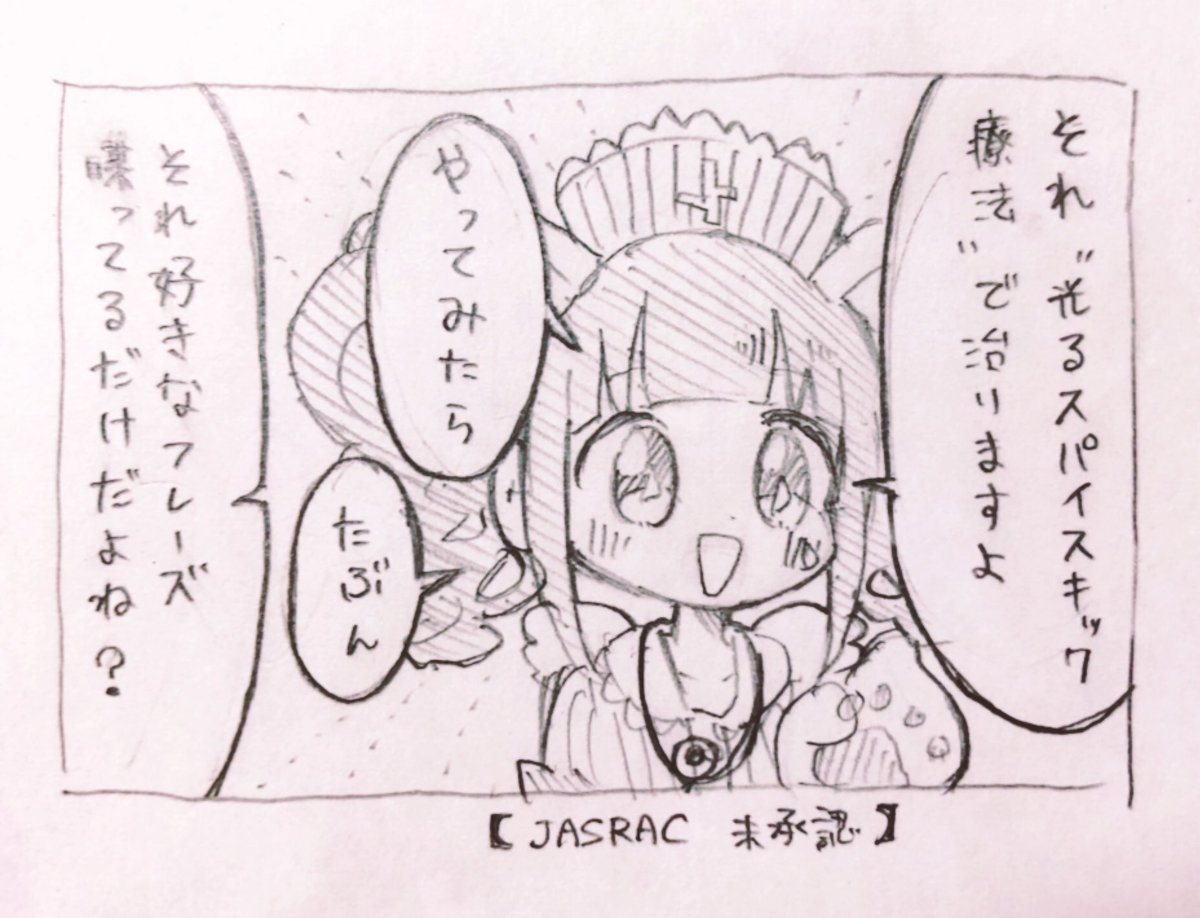 それ"光るスパイスキック
療法"で治りますよ
やってみたら
たぶん
それ好きなフレーズ
喋ってるだけだよね？
【JASRAC 未承認】